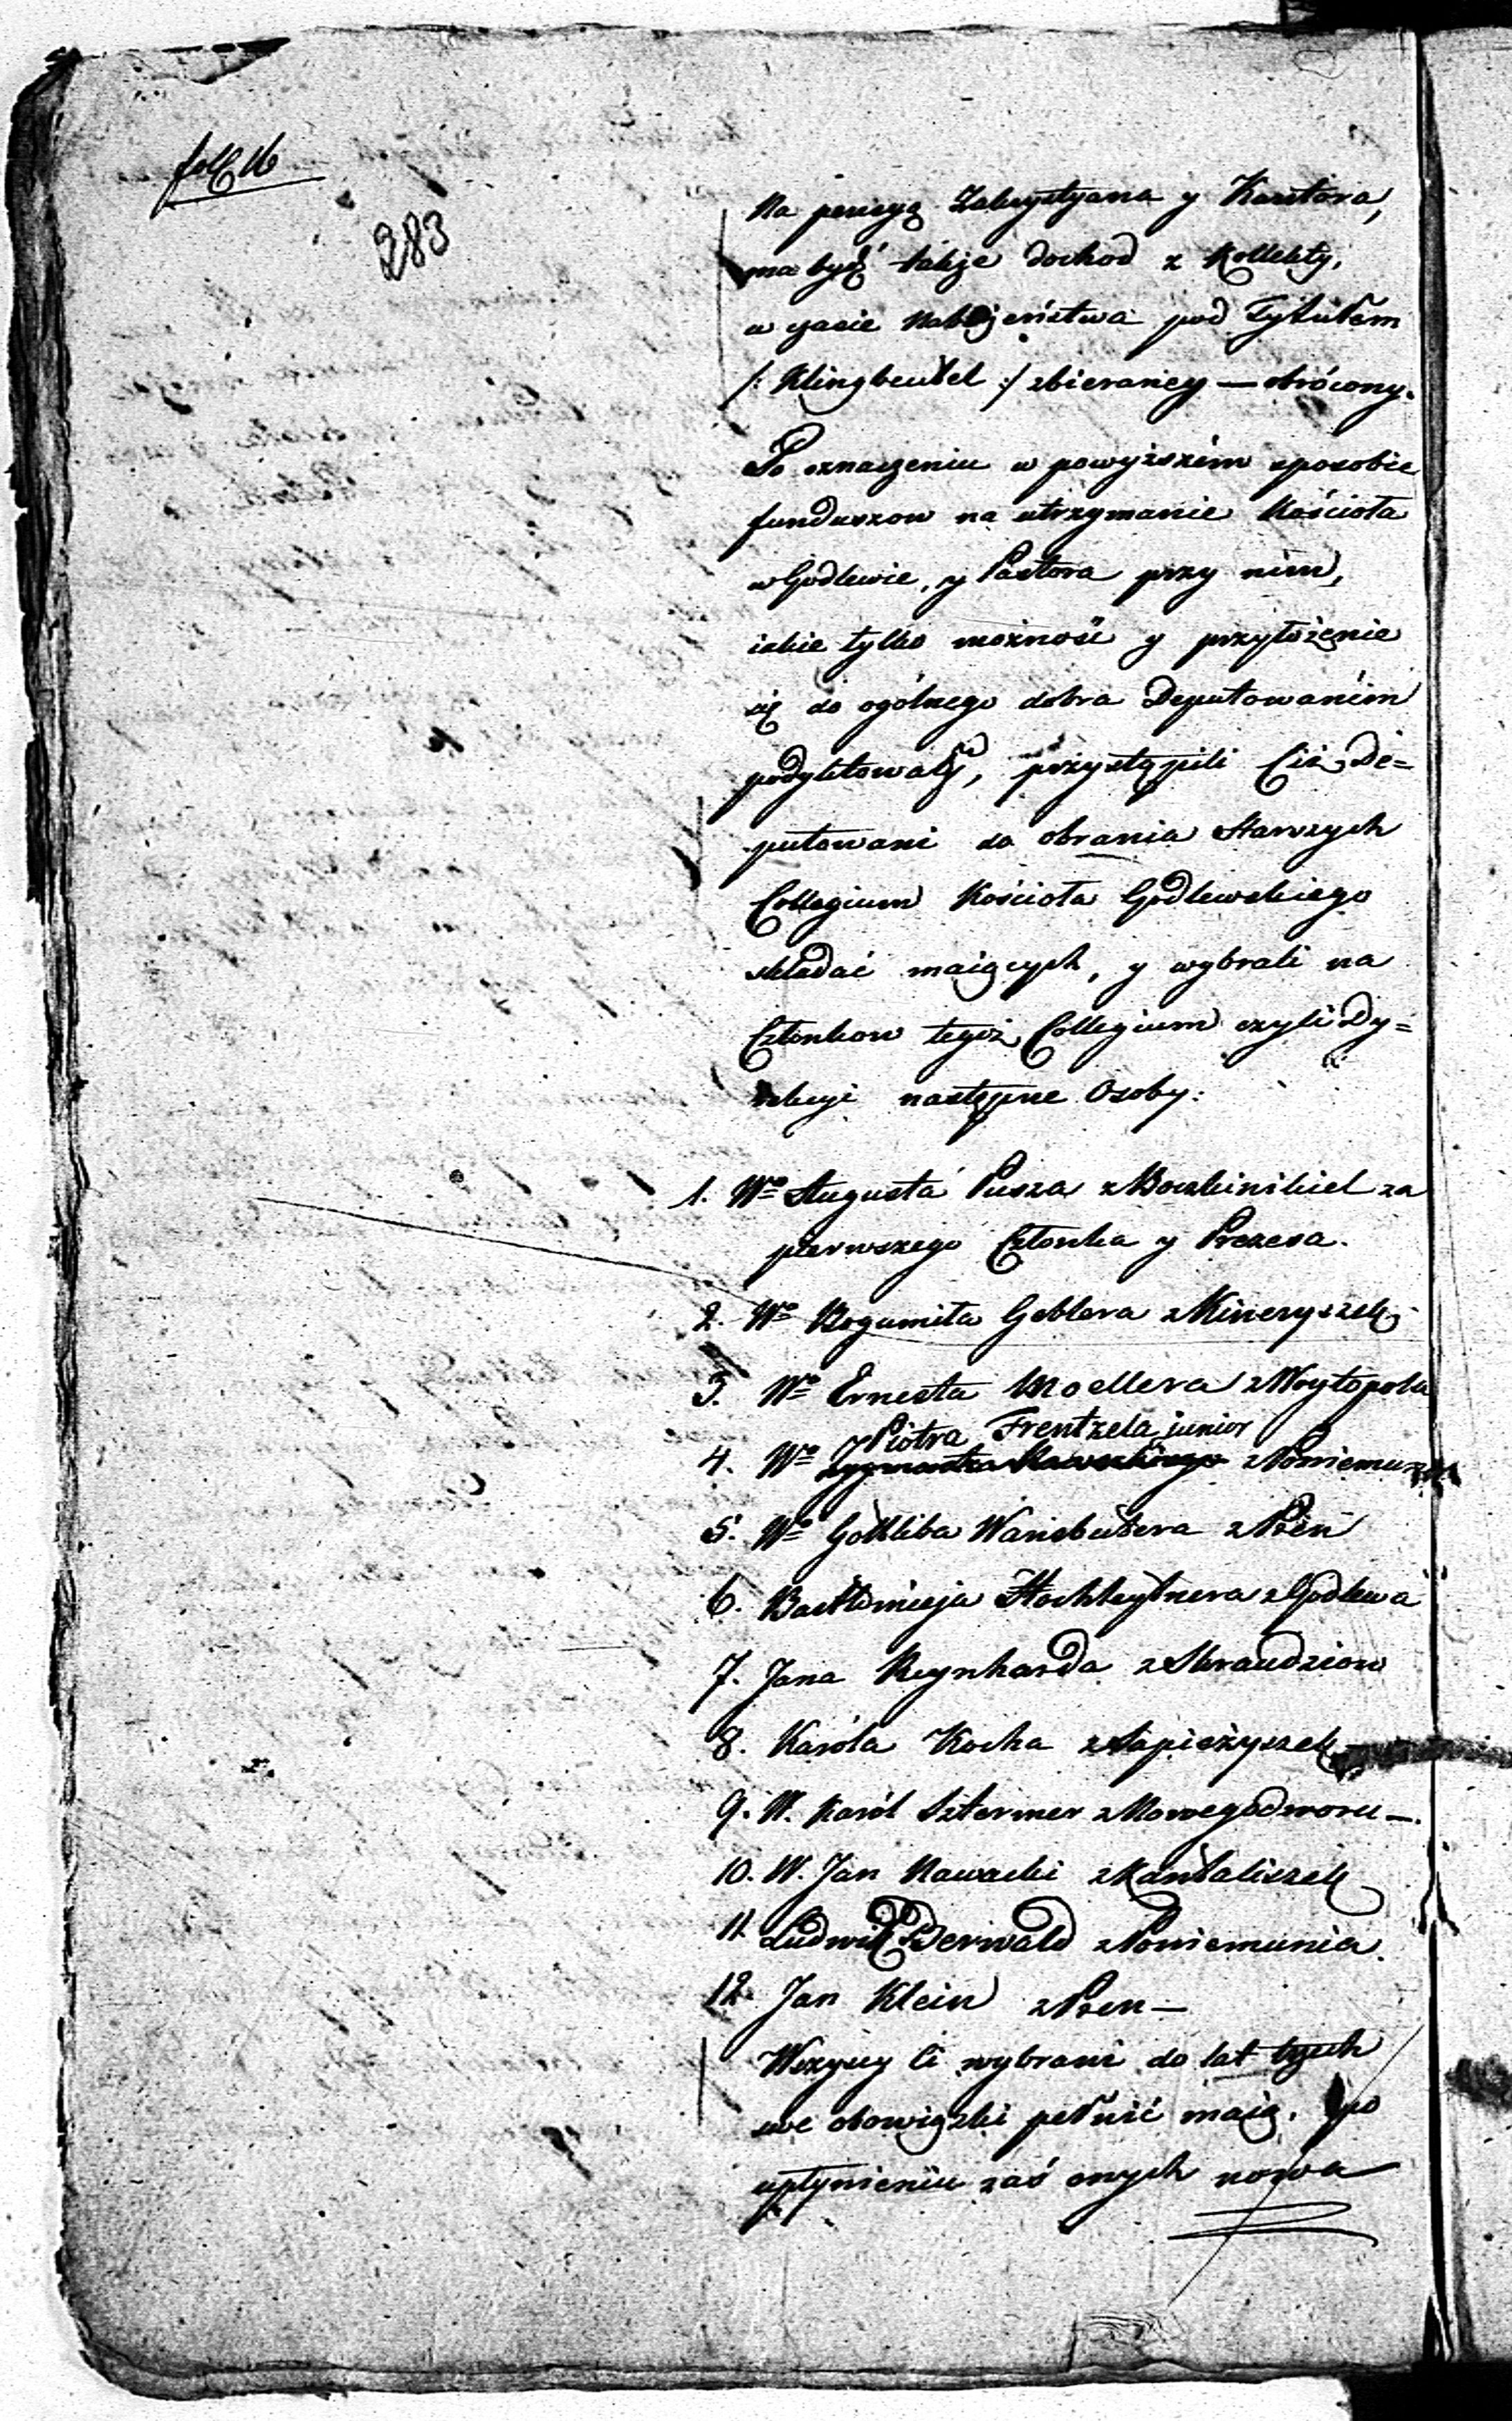 fol. 16
283
Na pensyą Zakrystyana y Kantora,
ma być także dochod z Kollekty,
w czasie Nabożeństwa pod Tytułem
/: Klingbeutel :/ zbieraney — obrócony.
Po oznaczeniu w powyższém sposobie
funduszow na utrzymanie Kościoła
w Godlewie, y Pastora przy nim,
iakie tylko możność y przyłożenie
się do ogólnego dobra Deputowaním
podyktowały, przystąpili Ciż De=
putowani do obrania Starszych
Collegium Kościoła Godlewskiego
składać maiących, y wybrali na
Członkow tegoż Collegium czyli Dy=
rekcyi następne Osoby:
1. Wo Augusta Pusza z Boczkinikiel za
pierwszego Członka y Prezesa.
2. Wo Bogumiła Geblera z Kineryszek
3. Wo Ernesta Moellera z Woytopola
Piotra Frentzela junior
4. Wo z Poniemunia
5. Wo Gottliba Wansbutera z Pren
6. Bartłomieja Hochleytnera z Godlewa
7. Jana Reynharda z Skraudziow
8. Karola Kocha z Sapieżyszek
9. W. Karol Sztermer z Nowegodworu —.
10. W. Jan Rawacki z Kantaliszek
11 Ludwik Berwald z Poniemunia.
12. Jan Klein z Pren —
Wszyscy Ci wybrani do lat trzech
swe obowiązki pełnić maią. po
upłynieniu zaś onych nowa